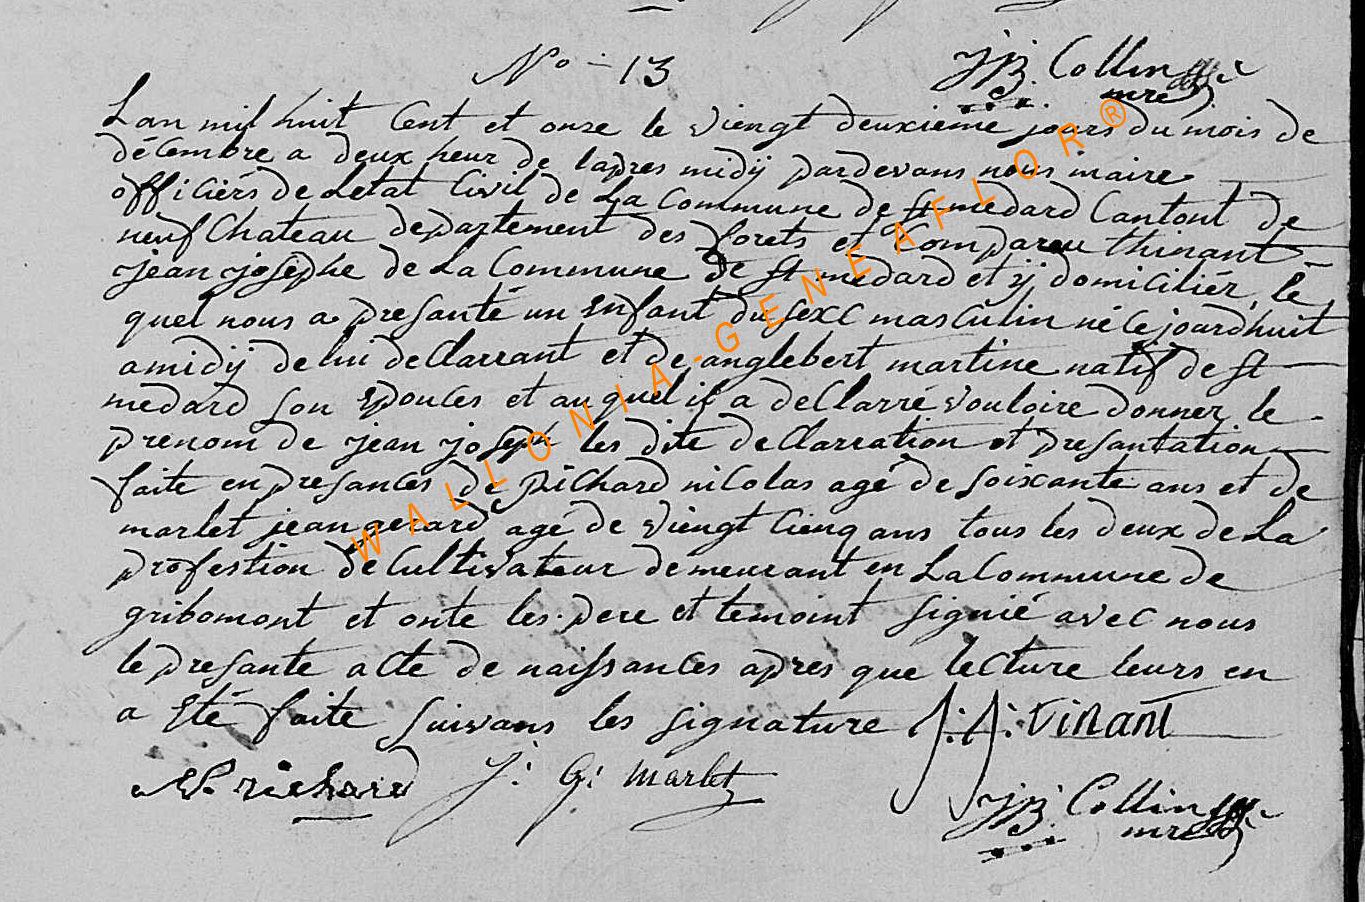 No - 13
JB. Collin
mre
Lan mil huit Cent et onze le viengt deuxieme jours du mois de
décembre a deux heur de lapres midij pardevans nous maire
officiérs de Letat Civil de La Commune de St medard Cantont de
neufChateau departement des forets et Compareu thinant
jean josephe de La Commune de St medard et ÿ domiciliér, le
quel nous a presanté un enfant du sexe masculin né Cejourdhuit
a midij de lui deClarrant et de anglebert martine natif de St
medard son epouces et au quel il a deClarré vouloire donner le
prenom de jean joseph les dite deClarration et presantation
faite en presances de Richard nicolas agé de soixante ans et de
marlet jean gerard agé de viengt Cienq ans tous les deux de La
profestion de Cultivateur demeurant en La Commune de
gribomont et onte les pere et temoint signié avec nous
le presante acte de naissances apres que lecture leurs en
a Eté faite suivans les signature J: J: vinant
N richard J: G: marlet
JB. Collin
mre
WALLONIA-GENEAFLOR®